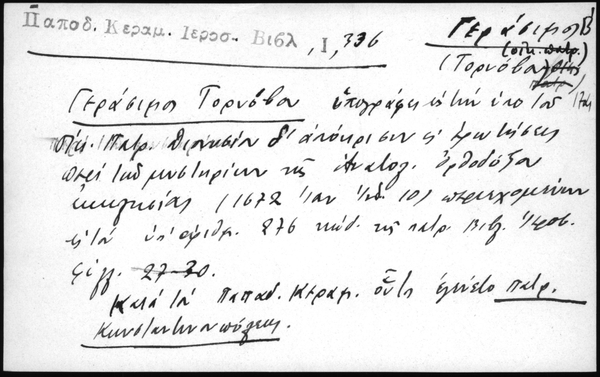 Παποδ. Κεραμ. Ιεροσ. Βιβλ, I, 336
Γεράσιμος Β΄
(οἰκ. πατρ.)
(Τορνόβου
Γεράσιμος Τορνόβου ὑπογράφει εἰς τὴν ὑπὸ τοῦ
Οἰκ. Πατρ. Διονυσίου δ΄ ἀπόκρισιν εἰς ἐρωτήσεις
περὶ τῶν μυστηρίων τῆς Ἀνατολ. Ὀρθοδόξου
ἐκκλησίας (1672 Ἰαν Ἰνδ. 10) περιεχομένην
εἰς τὸν ὑπ' ἀριθμ. 276 κώδ. τῆς πατρ. Βιβλ. Ἱεροσ.
φύλλ. 27-30.
Κατὰ τὸν Παπαδ. Κεραμ. οὗτος ἐγένετο πατρ.
Κωνσταντινουπόλεως.